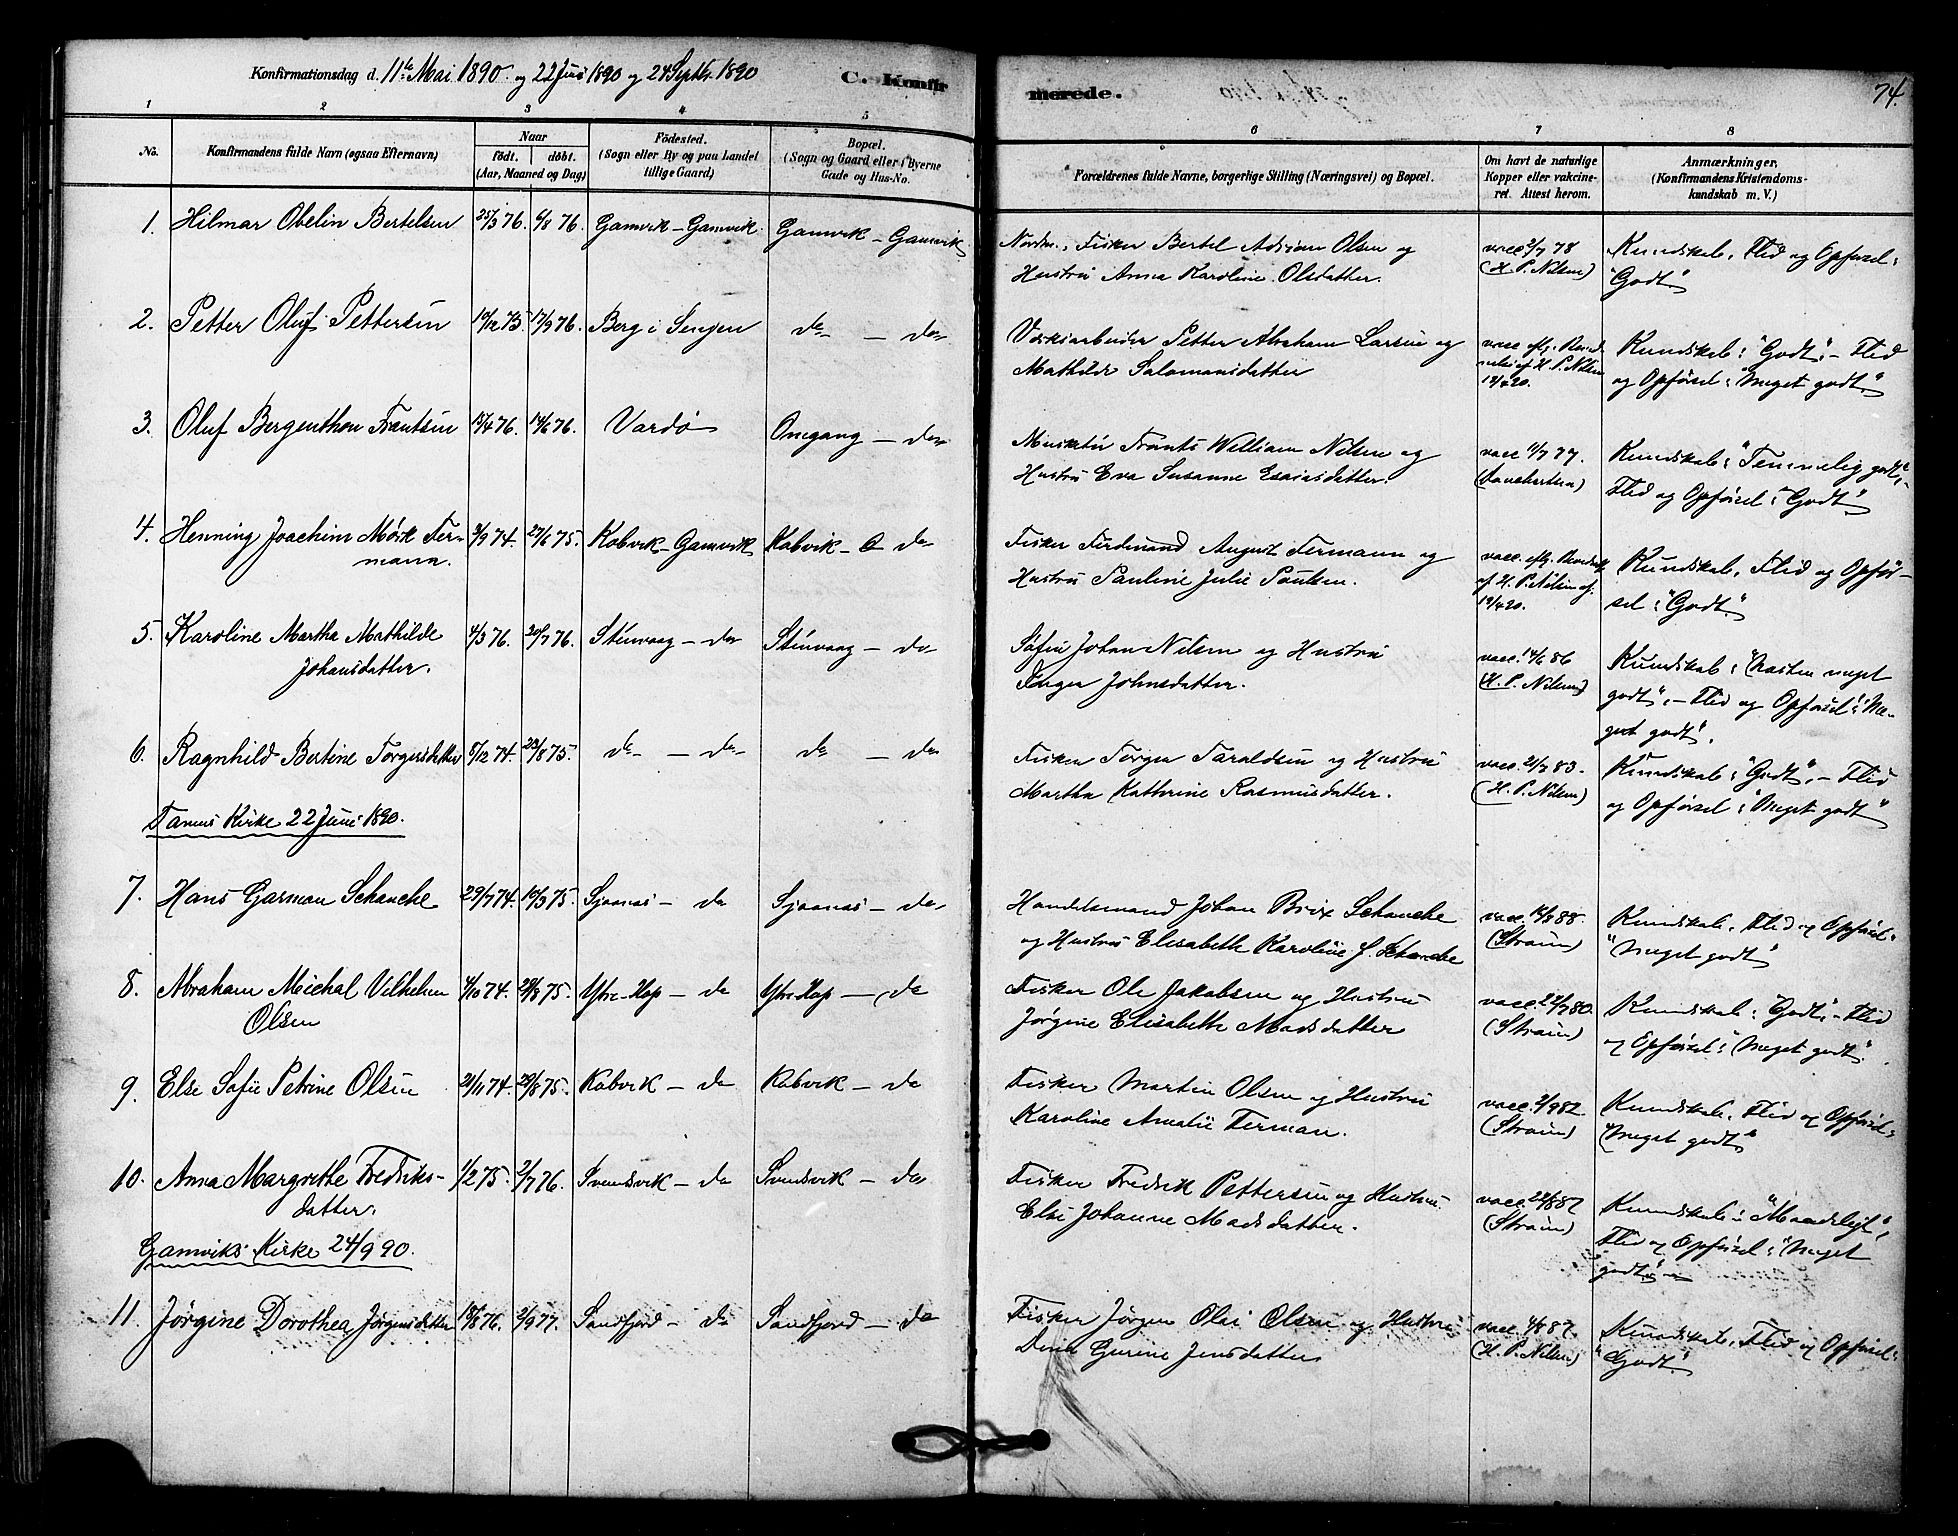 Konfirmationsdag d. 11te Mai 1890 og 22 Juni 1890 og 24 Septbr. 1890
C. Konfirmerede.
74.
1 2 3 4 5 6 7 8
No.
Konfirmandens fulde Navn (ogsaa Efternavn)
Naar
födt. döbt.
(Aar, Maaned og Dag)
Födested.
(Sogn eller By og paa Landet
tillige Gaard)
Bopæl.
(Sogn og Gaard eller i Byerne
Gade og Hus-No.
Forældrenes fulde Navne, borgerlige Stilling (Næringsvei) og Bopæl.
Om havt de naturlige
Kopper eller vakcine-
ret. Attest herom.
Anmærkninger,
(Konfirmandens Kristendoms-
kundskab m. V.)
1. Hilmar Obelin Bertelsen 25/3 76. 6/8 76. Gamvik - Gamvik Gamvik - Gamvik
Nordm., Fisker Bertel Adrian Olsen og
Hustru Anna Karoline Olsdatter.
vacc. 2/7 78
(H. P. Nilsen)
Kundskab, Flid og Opførsel:
"Godt"
2. Petter Oluf Pettersen 19/12 75. 17/9 76. Berg i Senjen do - do
Petter Abraham Larsen og
Mathilde Salomonsdatter
vacc. eflg.
af H. P. Nilsen
19/4 20.
Kundskab: "Godt", - Flid
og Opførsel: "Meget godt"
3. Oluf Bergenthon Frantsen 15/4 76. 14/6 76. Vardø Omgang - do
Frants William Nilsen og
Hustru Eva Susanne Esaiasdatter.
vacc. 11/7 77.
Kundskab: "Temmelig godt",
Flid og Opførsel: "Godt"
4. Henning Joachim Mørk Fer-
mann. 3/9 74. 27/6 75. Kobvik - Gamvik Kobvik - do
Fisker Ferdinand August Fermann og
Hustru Pauline Julie Poulsen.
vacc. eflg.
af H. P. Nilsen af
19/4 20.
Kundskab, Flid og Opfør-
sel: "Godt"
5. Karoline Martha Mathilde
Johansdatter. 4/3 76. 20/7 76. Stenvaag - do Stenvaag - do
Søfin Johan Nilsen og Hustru
Inger Johnsdatter.
vacc. 14/6 86
(H. P. Nilsen)
Kundskab: "Næsten meget
godt", - Flid og Opførsel: "Me-
get godt".
6. Ragnhild Bertine Torgersdatter 5/12 74. 29/8 75. do - do do - do
Fisker Torger Taraldsen og Hustru
Martha Kathrine Rasmusdatter.
vacc. 21/7 83.
(H. P. Nilsen)
Kundskab: "Godt", - Flid
og Opførsel: "Meget godt"
Tanens Kirke 22 Juni 1890.
7. Hans Garman Schanche 29/7 74. 19/3 75. Sjaanas - do Sjaanas - do
Handelsmand Johan Brix Schanche
og Hustru Elisabeth Karoline J. Schanche
vacc. 14/8 88.
(Straum)
Kundskab, Flid og Opførsel:
"Meget godt"
8. Abraham Michal Vilhelm
Olsen 4/10 74. 29/8 75. Ytre-Hop - do Ytre-Hop - do
Fisker Ole Jakobsen og Hustru
Jørgine Elisabeth Madsdatter
vacc. 22/7 80.
(Straum)
Kundskab: "Godt", - Flid
og Opførsel: "Meget godt".
9. Else Sofie Petrine Olsen 21/11 74. 29/8 75. Kobvik - do Kobvik - do
Fisker Martin Olsen og Hustru
Karoline Amalie Ferman.
vacc. 2/9 82
(Straum)
Kundskab, Flid og Opførsel:
"Meget godt"
10. Anna Margrethe Fredriks-
datter. 1/2 75. 2/7 76. Svendsvik - do Svendsvik - do
Fisker Fredrik Pettersen og Hustru
Else Johanne Madsdatter.
vacc. 22/8 87
(Straum)
Kundskab: "Maadeligt",
Flid og Opførsel: "Meget
godt"
Gamviks Kirke 24/9 90.
11. Jørgine Dorothea Jørgensdatter 18/8 76. 2/9 77. Sandfjord - do Sandfjord - do
Fisker Jørgen Olai Olsen og Hustru
Dina Gurine Jensdatter
vacc. 4/8 87.
(H. P. Nilsen)
Kundskab, Flid og Opførsel:
"Godt"